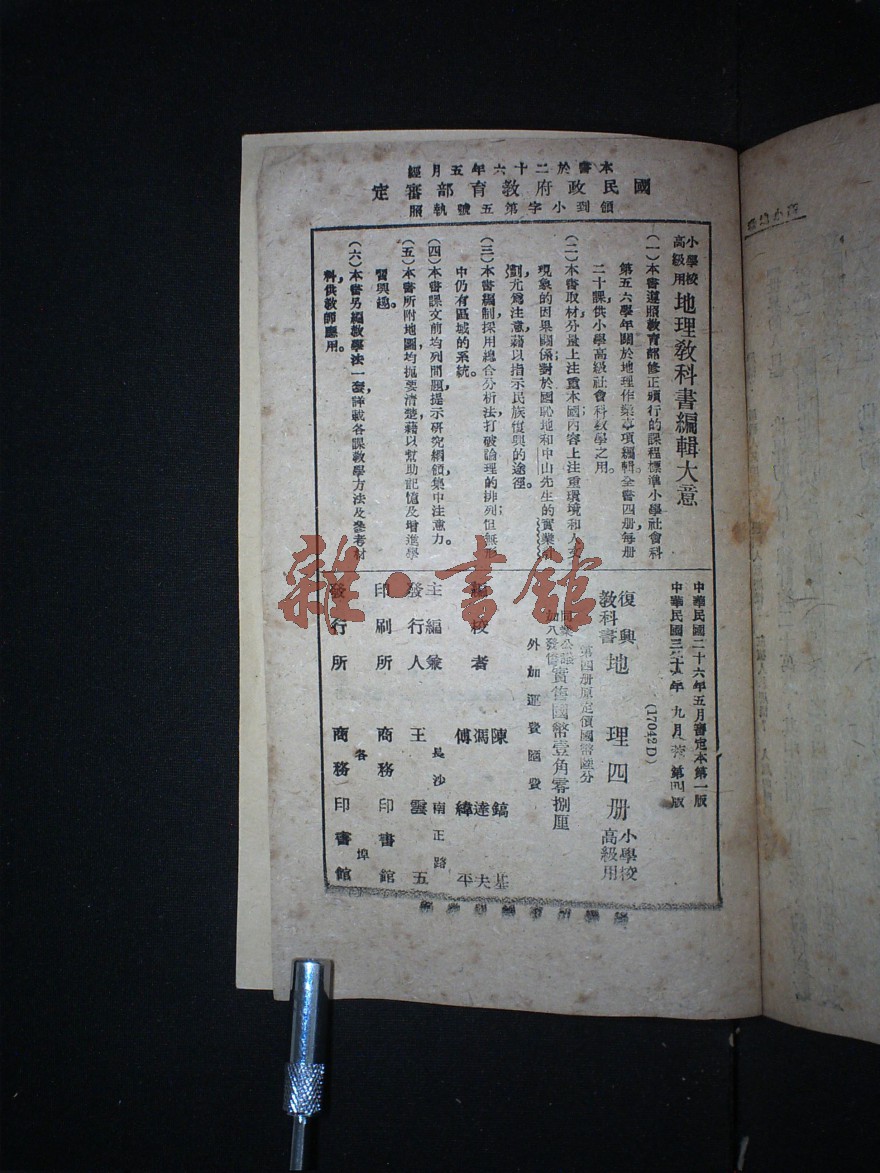 本書於二十六年五月經
國民政府教育部審定
領到小字第五號執照
小學校高級用地理教科書編輯大意
(一)本書遵照教育部修正頒行的課程標準小學社會科
第五六學年關於地理作業事項編輯。全書四册,每册
二十課,供小學高級社會科教學之用。
(二)本書取材分量上注重本國;內容上注重環境和人文
現象的因果關係;對於國恥地和中山先生的實業計
劃,尤爲注意,藉以指示民族復興的途徑。
(三)本書編制採用總合分析法,打破論理的排列;但無形
中仍有區域的系統。
(四)本書課文前均列問題,提示研究綱領,集中注意力。
(五)本書所附地圖,均扼要清楚,藉以幫助記憶及增進學
習興趣。
(六)本書另編教學法一套,詳載各課教學方法及參考材
料,供教師應用。
中華民國二十六年五月審定本第一版
中華民國 年九月 第四版
(17042D)
復興教科書 地理四册 小學校高級用
第四册原定價國幣陸分
同業公議
加八發售 實售國幣壹角零捌厘
外加運費匯費
編校者 陳鎬基
馮達夫
傅緯平
主編兼發行人 王雲五
長沙南正路
印刷所 商務印書館
發行所 各埠商務印書館
雜·書館